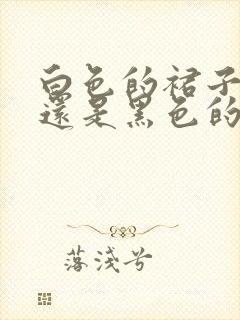 白色的裙子
還是黑色的
落淺兮